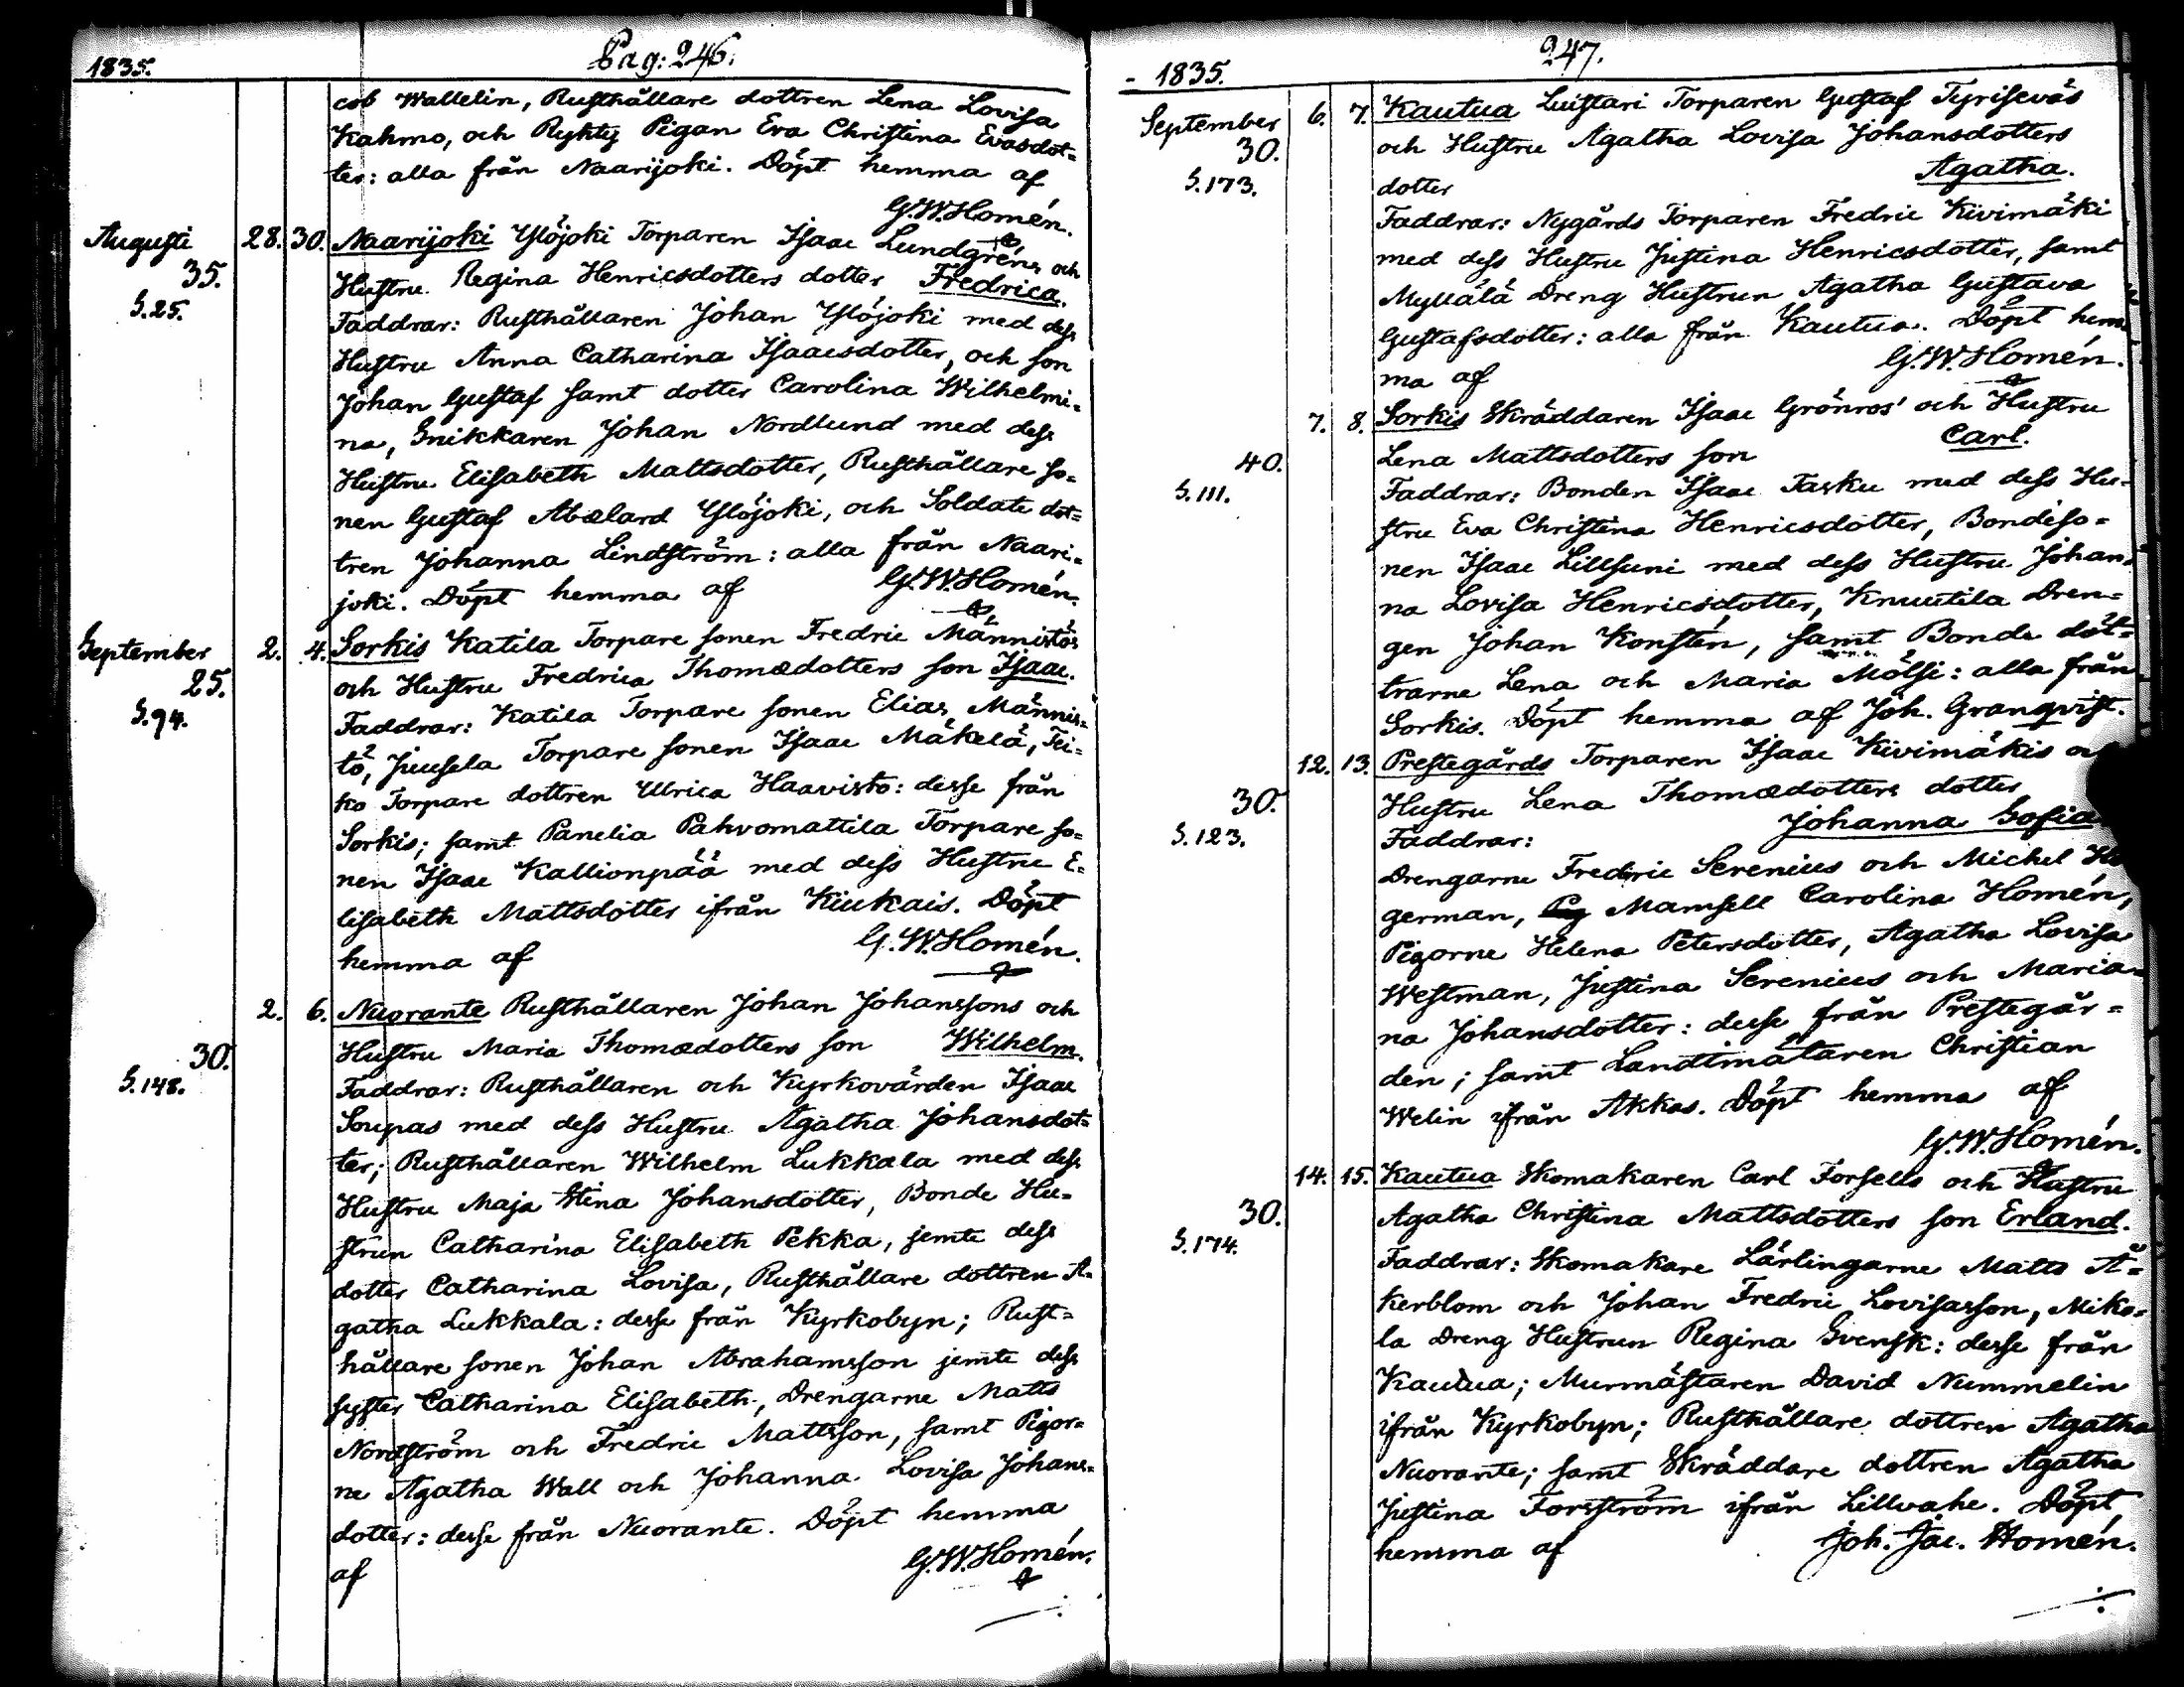 1835.
Pag: 246.
cob Wallelin, Rusthållare dottren Lena Lovisa
Kahmo, och Ryktig Pigan Eva Christina Evasdot=
ter: alla från Naarijoki. Döpt hemma af
G.W.Homén.
Augusti 28. 30. Naarijoki Ylöjoki Torparen Isaac Lundgréns och
35. Hustru Regina Henricsdotters dotter Fredrica.
S.25. Faddrar: Rusthållaren Johan Ylöjoki med dess
Hustru Anna Catharina Isaacsdotter, och son
Johan Gustaf samt dotter Carolina Wilhelmi=
na, Snikkaren Johan Nordlund med dess
Hustru Elisabeth Mattsdotter, Rusthållare so=
nen Gustaf Abelard Ylöjoki, och Soldate dot=
tren Johanna Lindström: alla från Naari=
joki. Döpt hemma af G.W.Homén.
September 2. 4. Sorkis Katila Torpare sonen Fredric Männistös
25. och Hustru Fredrica Thomædotters son Isaac.
S.94. Faddrar: Katila Torpare sonen Elias Männis=
tö, Juusela Torpare sonen Isaac Mäkelä, Tei=
ko Torpare dottren Ulrica Haavisto: desse från
Sorkis; samt Panelia Pahvomattila Torpare so=
nen Isaac Kallionpää med dess Hustru E=
lisabeth Mattsdotter ifrån Kiukais. Döpt
hemma af G.W.Homén.
2. 6. Nuorante Rusthållaren Johan Johanssons och
30. Hustru Maria Thomædotters son Wilhelm.
S.148. Faddrar: Rusthållaren och Kyrkovärden Isaac
Soupas med dess Hustru Agatha Johansdot=
ter; Rusthållaren Wilhelm Lukkala med dess
Hustru Maja Stina Johansdotter, Bonde Hu=
strun Catharina Elisabeth Pekka, jemte dess
dotter Catharina Lovisa, Rusthållare dottren A=
gatha Lukkala: desse från Kyrkobyn; Rust=
hållare sonen Johan Abrahamsson jemte dess
syster Catharina Elisabeth, Drengarne Matts
Nordström och Fredric Mattsson, samt Pigor=
ne Agatha Wall och Johanna Lovisa Johans=
dotter: desse från Nuorante. Döpt hemma
af G.W.Homén.
1835.
247.
September 6. 7. Kautua Luistari Torparen Gustaf Tyriseväs
30. och Hustru Agatha Lovisa Johansdotters
S.173. dotter Agatha.
Faddrar: Nygårds Torparen Fredric Kivimäki
med dess Hustru Justina Henricsdotter, samt
Myllälä Dreng Hustrun Agatha Gustava
Gustafsdotter: alla från Kautua. Döpt hem=
ma af G.W.Homén.
7. 8. Sorkis Skräddaren Isaac Grönros' och Hustru
40. Lena Mattsdotters son Carl.
S.111. Faddrar: Bonden Isaac Tasku med dess Hu=
stru Eva Christina Henricsdotter, Bondeso=
nen Isaac Lillsuni med dess Hustru Johan=
na Lovisa Henricsdotter, Knuutila Dren=
gen Johan Konstén, samt Bonde döt=
trarne Lena och Maria Mölsi: alla från
Sorkis. Döpt hemma af Joh. Granqvist.
12. 13. Prestegårds Torparen Isaac Kivimäkis och
30. Hustru Lena Thomædotters dotter
S.123. Johanna Sofia
Faddrar:
Drengarne Fredric Serenius och Michel
german, Mamsell Carolina Homén,
Pigorne Helena Petersdotter, Agatha Lovisa
Westman, Justina Serenius och Maria=
na Johansdotter: desse från Prestegår=
den; samt Landtmätaren Christian
Welin ifrån Akkas. Döpt hemma af
G.W.Homén.
14. 15. Kautua Skomakaren Carl Forsells och Hustru
30. Agatha Christina Mattsdotters son Erland.
S.174. Faddrar: Skomakare Lärlingarne Matts Å=
kerblom och Johan Fredric Lovisasson, Miko=
la Dreng Hustrun Regina Svensk: desse från
Kautua; Murmästaren David Nummelin
ifrån Kyrkobyn; Rusthållare dottren Agatha
Nuorante; samt Skräddare dottren Agatha
Justina Forsström ifrån Lillvahe. Döpt
hemma af Joh. Jac. Homén.